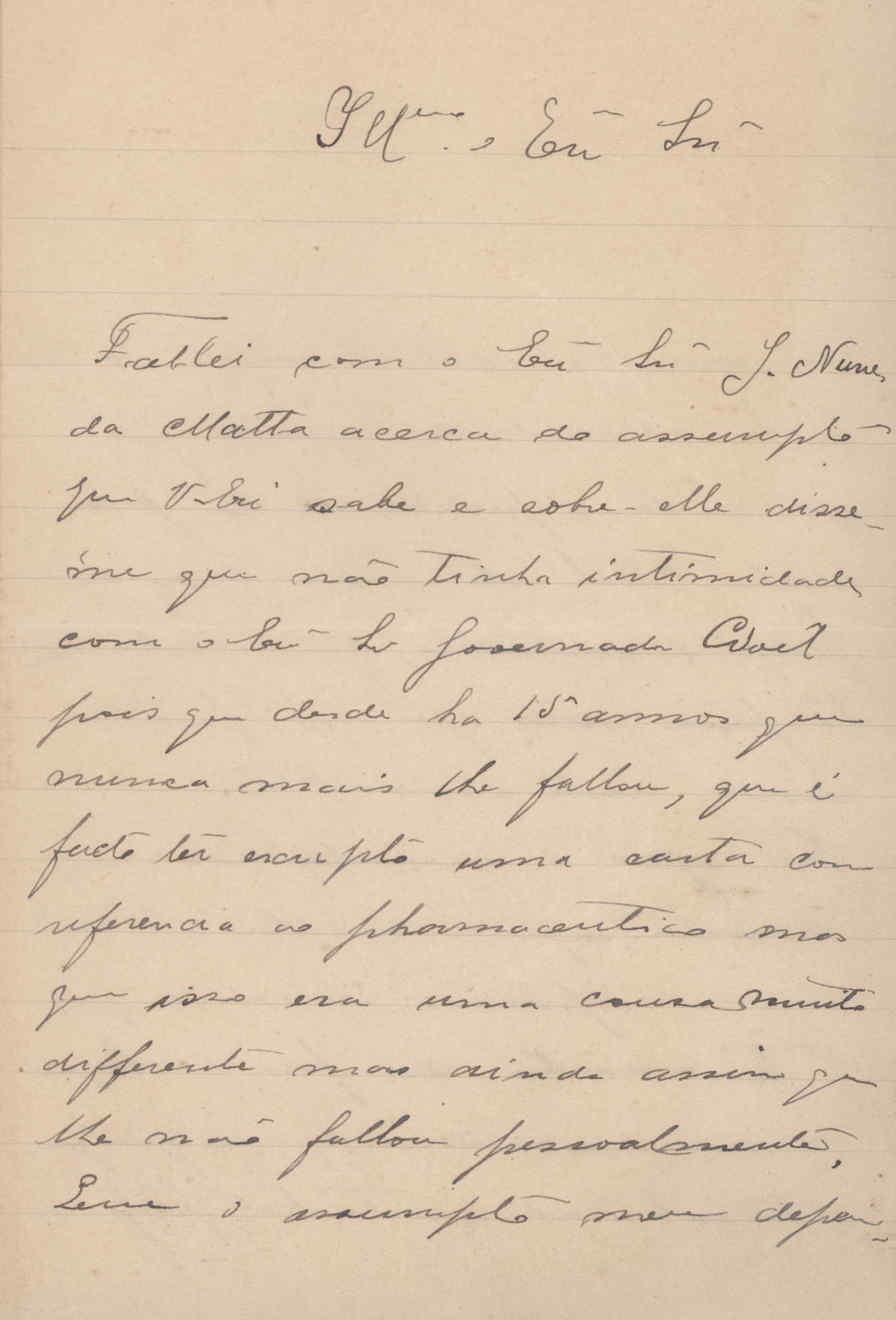 Illmo. e Exº Snr
Fallei com o Exº Snr J. Nunes
da Matta acerca do assumpto
que V. Exª sabe e sobre elle disse-
me que não tinha intimidade
com o Exº Sr Governador Civil
pois que desde ha 15 annos que
nunca mais lhe fallou, que é
facto ter escripto uma carta com
referencia ao pharmaceutico mas
que isso era uma cousa muito
differente mas ainda assim que
lhe não fallou pessoalmente.
o assumpto depen-